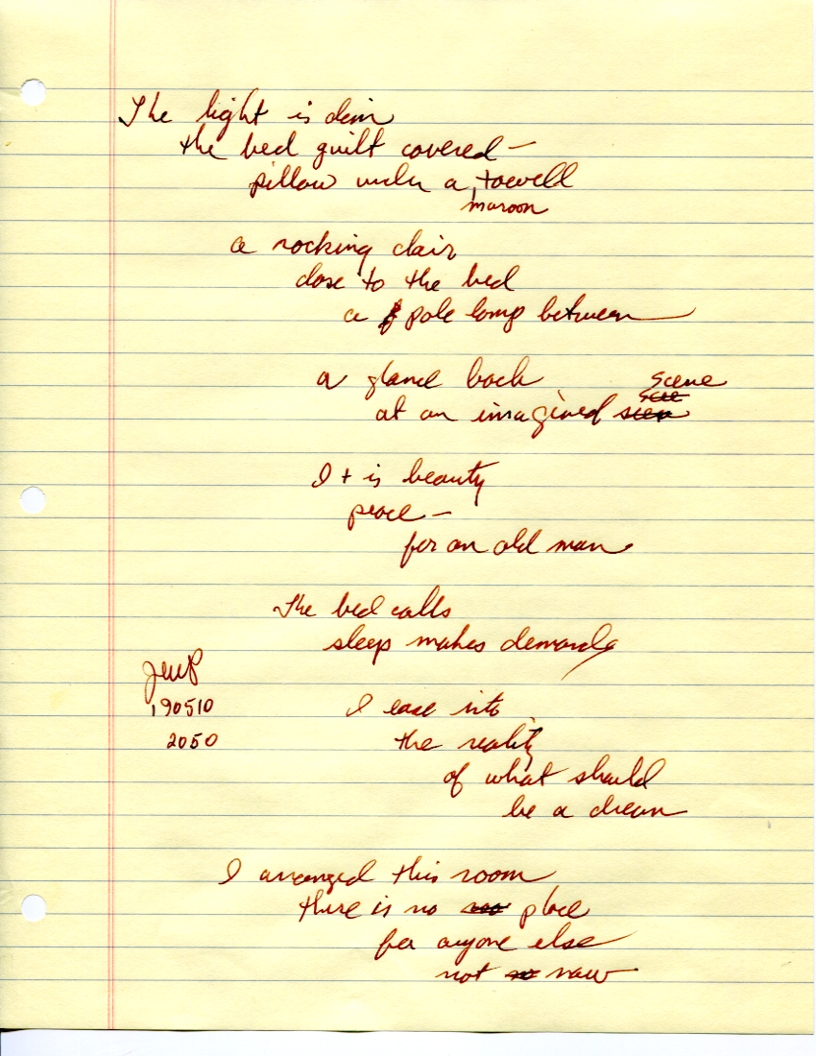 The light is dim
the bed quilt covered—
pillow under a towell
maroon
a rocking chair
close to the bed
a pole lamp between
a glance back
scene
at an imagined
It is beauty
peace—
for an old man
The bed calls
sleep makes demands
190510
I ease into
2050
the reality
of what should
be a dream
I arranged this room
there is no place
for anyone else
not now